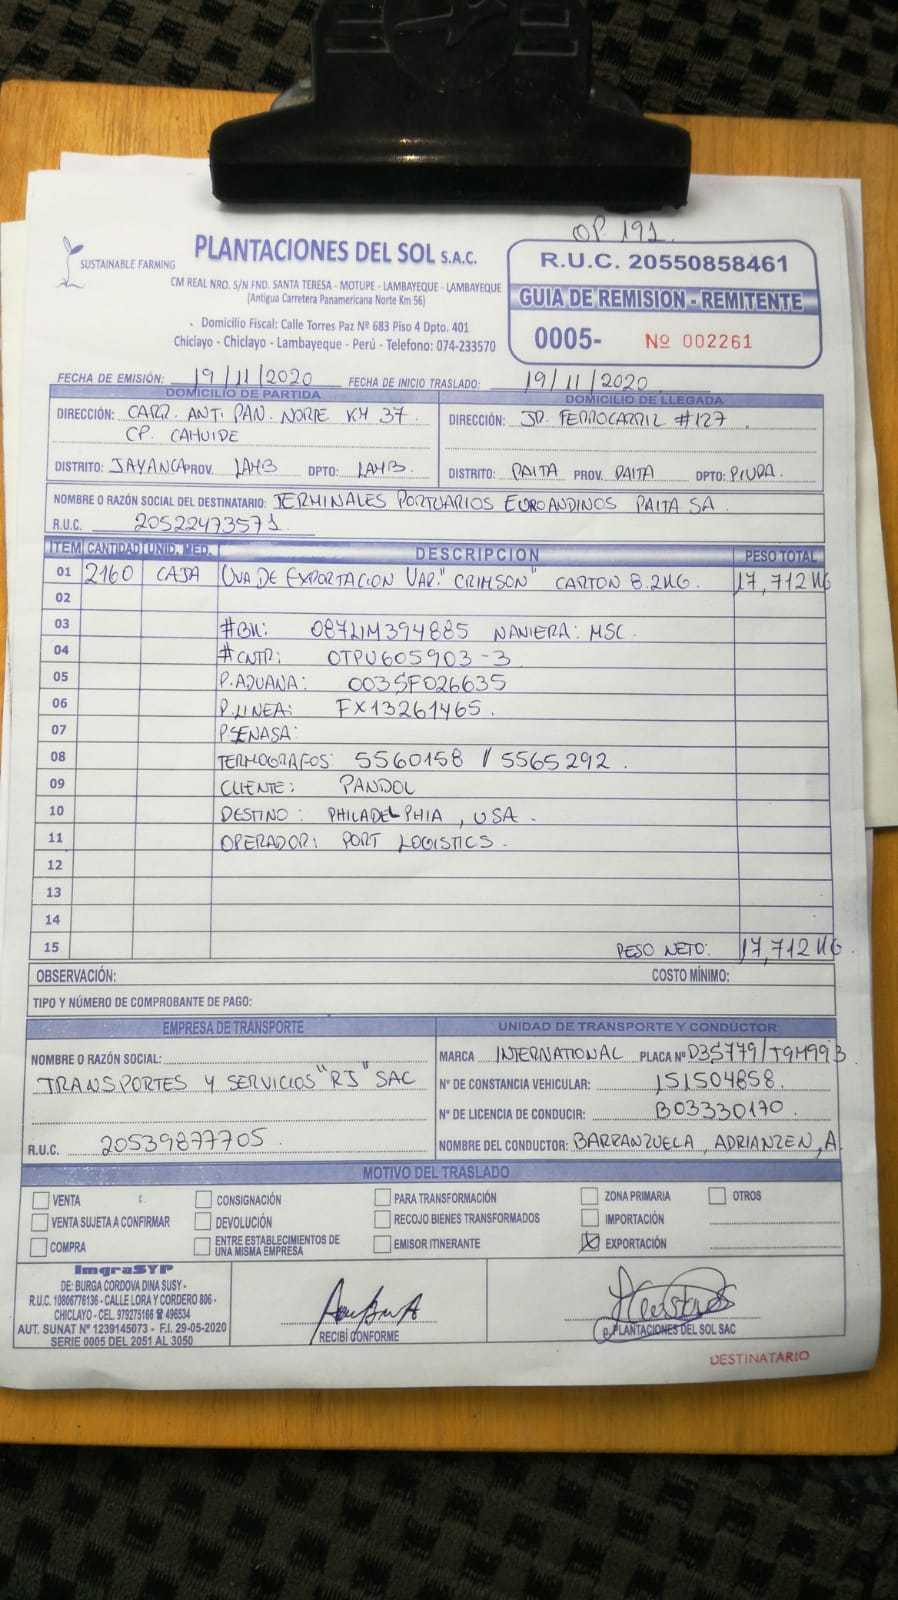 OP 191
SUSTAINABLE FARMING
PLANTACIONES DEL SOL S.A.C.
CM REAL NRO. S/N FND. SANTA TERESA - MOTUPE - LAMBAYEQUE - LAMBAYEQUE
(Antigua Carretera Panamericana Norte Km 56)
Domicilio Fiscal: Calle Torres Paz Nº 683 Piso 4 Dpto. 401
Chiclayo - Chiclayo - Lambayeque - Perú - Telefono: 074-233570
R.U.C. 20550858461
GUIA DE REMISION - REMITENTE
0005- Nº 002261
FECHA DE EMISIÓN: 19/11/2020 FECHA DE INICIO TRASLADO: 19/11/2020
DOMICILIO DE PARTIDA
DIRECCIÓN: CARR. ANT. PAN. NORTE KM 37.
CP. CAHUIDE
DISTRITO: JAYANCA PROV. LAMB DPTO: LAMB.
DOMICILIO DE LLEGADA
DIRECCIÓN: JD. FERROCARRIL #127
DISTRITO: PAITA PROV. PAITA DPTO: PIURA.
NOMBRE O RAZÓN SOCIAL DEL DESTINATARIO: TERMINALES PORTUARIOS EUROANDINOS PAITA SA.
R.U.C. 20522473571.
ITEM CANTIDAD UNID. MED. DESCRIPCION PESO TOTAL
01 2160 CAJA UVA DE EXPORTACION VAR." CRIMSON" CARTON 8.2KG. 17,712 KG
02
03 #BK: 087LIM394885 NANIERA: MSC.
04 #CNTR: OTPU605903-3
05 P.ADUANA: 003SF026635
06 P.LINEA: FX13261465.
07 P.SENASA:
08 TERMOGRAFOS: 5560158 / 5565292.
09 CLIENTE: PANDOL
10 DESTINO: PHILADELPHIA, USA.
11 OPERADOR: PORT LOGISTICS.
12
13
14
15 PESO NETO: 17,712 KG
OBSERVACIÓN: COSTO MÍNIMO:
TIPO Y NÚMERO DE COMPROBANTE DE PAGO:
EMPRESA DE TRANSPORTE
NOMBRE O RAZÓN SOCIAL:
TRANSPORTES Y SERVICIOS "RJ" SAC
R.U.C. 20539877705
UNIDAD DE TRANSPORTE Y CONDUCTOR
MARCA INTERNATIONAL PLACA Nº D3S779/T9M993
Nº DE CONSTANCIA VEHICULAR: 151504858.
Nº DE LICENCIA DE CONDUCIR: B03330170.
NOMBRE DEL CONDUCTOR: BARRANZUELA, ADRIANZEN, A
MOTIVO DEL TRASLADO
VENTA CONSIGNACIÓN PARA TRANSFORMACIÓN ZONA PRIMARIA OTROS
VENTA SUJETA A CONFIRMAR DEVOLUCIÓN RECOJO BIENES TRANSFORMADOS IMPORTACIÓN
COMPRA ENTRE ESTABLECIMIENTOS DE UNA MISMA EMPRESA EMISOR ITINERANTE X EXPORTACIÓN
ImgraSYP
DE: BURGA CORDOVA DINA SUSY -
R.U.C. 10806776136 - CALLE LORA Y CORDERO 806 -
CHICLAYO - CEL. 979275166 ☎ 496534
AUT. SUNAT Nº 1239145073 - F.I. 29-05-2020
SERIE 0005 DEL 2051 AL 3050
RECIBÍ CONFORME
PLANTACIONES DEL SOL SAC
DESTINATARIO